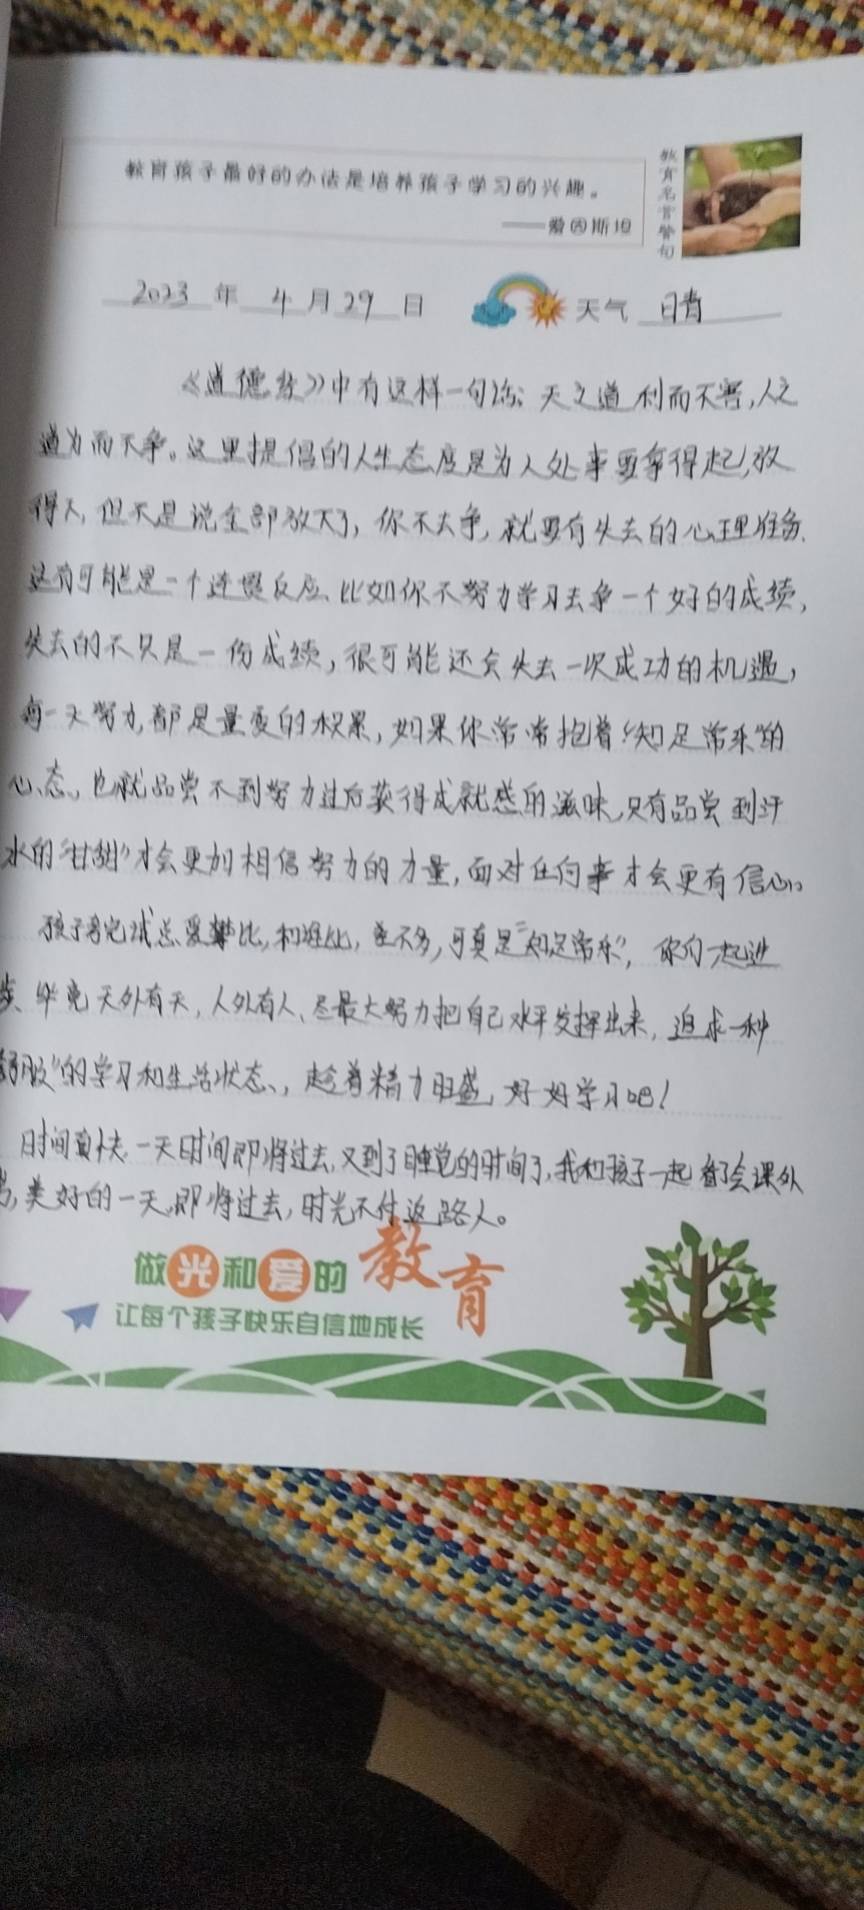 教育孩子最好的办法是培养孩子学习的兴趣。
——爱因斯坦
教育名言警句
2023 年 4 月 29 日 天气 晴
《道德经》中有这样一句话:天之道利而不害,人之
道为而不争。这里提倡的人生态度是为人处事要拿得起,放
得下,但不是说全部放下了,你不去争,就要有失去的心理准备.
这有可能是一个连贯反应、比如你不努力学习去争一个好的成绩,
失去的不只是一份成绩,很可能还会失去一次成功的机遇,
每一天努力,都是量变的积累,如果你常常抱着"知足常乐"的
心态、也就品尝不到努力过后获得成就感的滋味,只有品尝到汗
水的"甘甜"才会更加相信努力的力量,面对任何事才会更有信心。
孩子考完试总爱攀比,和谁比,差不多,可真是"知足常乐",你们一起进
步、毕竟天外有天,人外有人、尽最大努力把自己水平发挥出来,追求一种
舒服"的学习和生活状态、,趁着精力旺盛,好好学习吧!
时间真快,一天时间即将过去,又到了睡觉的时间了,我和孩子一起看了会课外
书,美好的一天,即将过去,时光不付返路人。
做光和爱的教育
让每个孩子快乐自信地成长